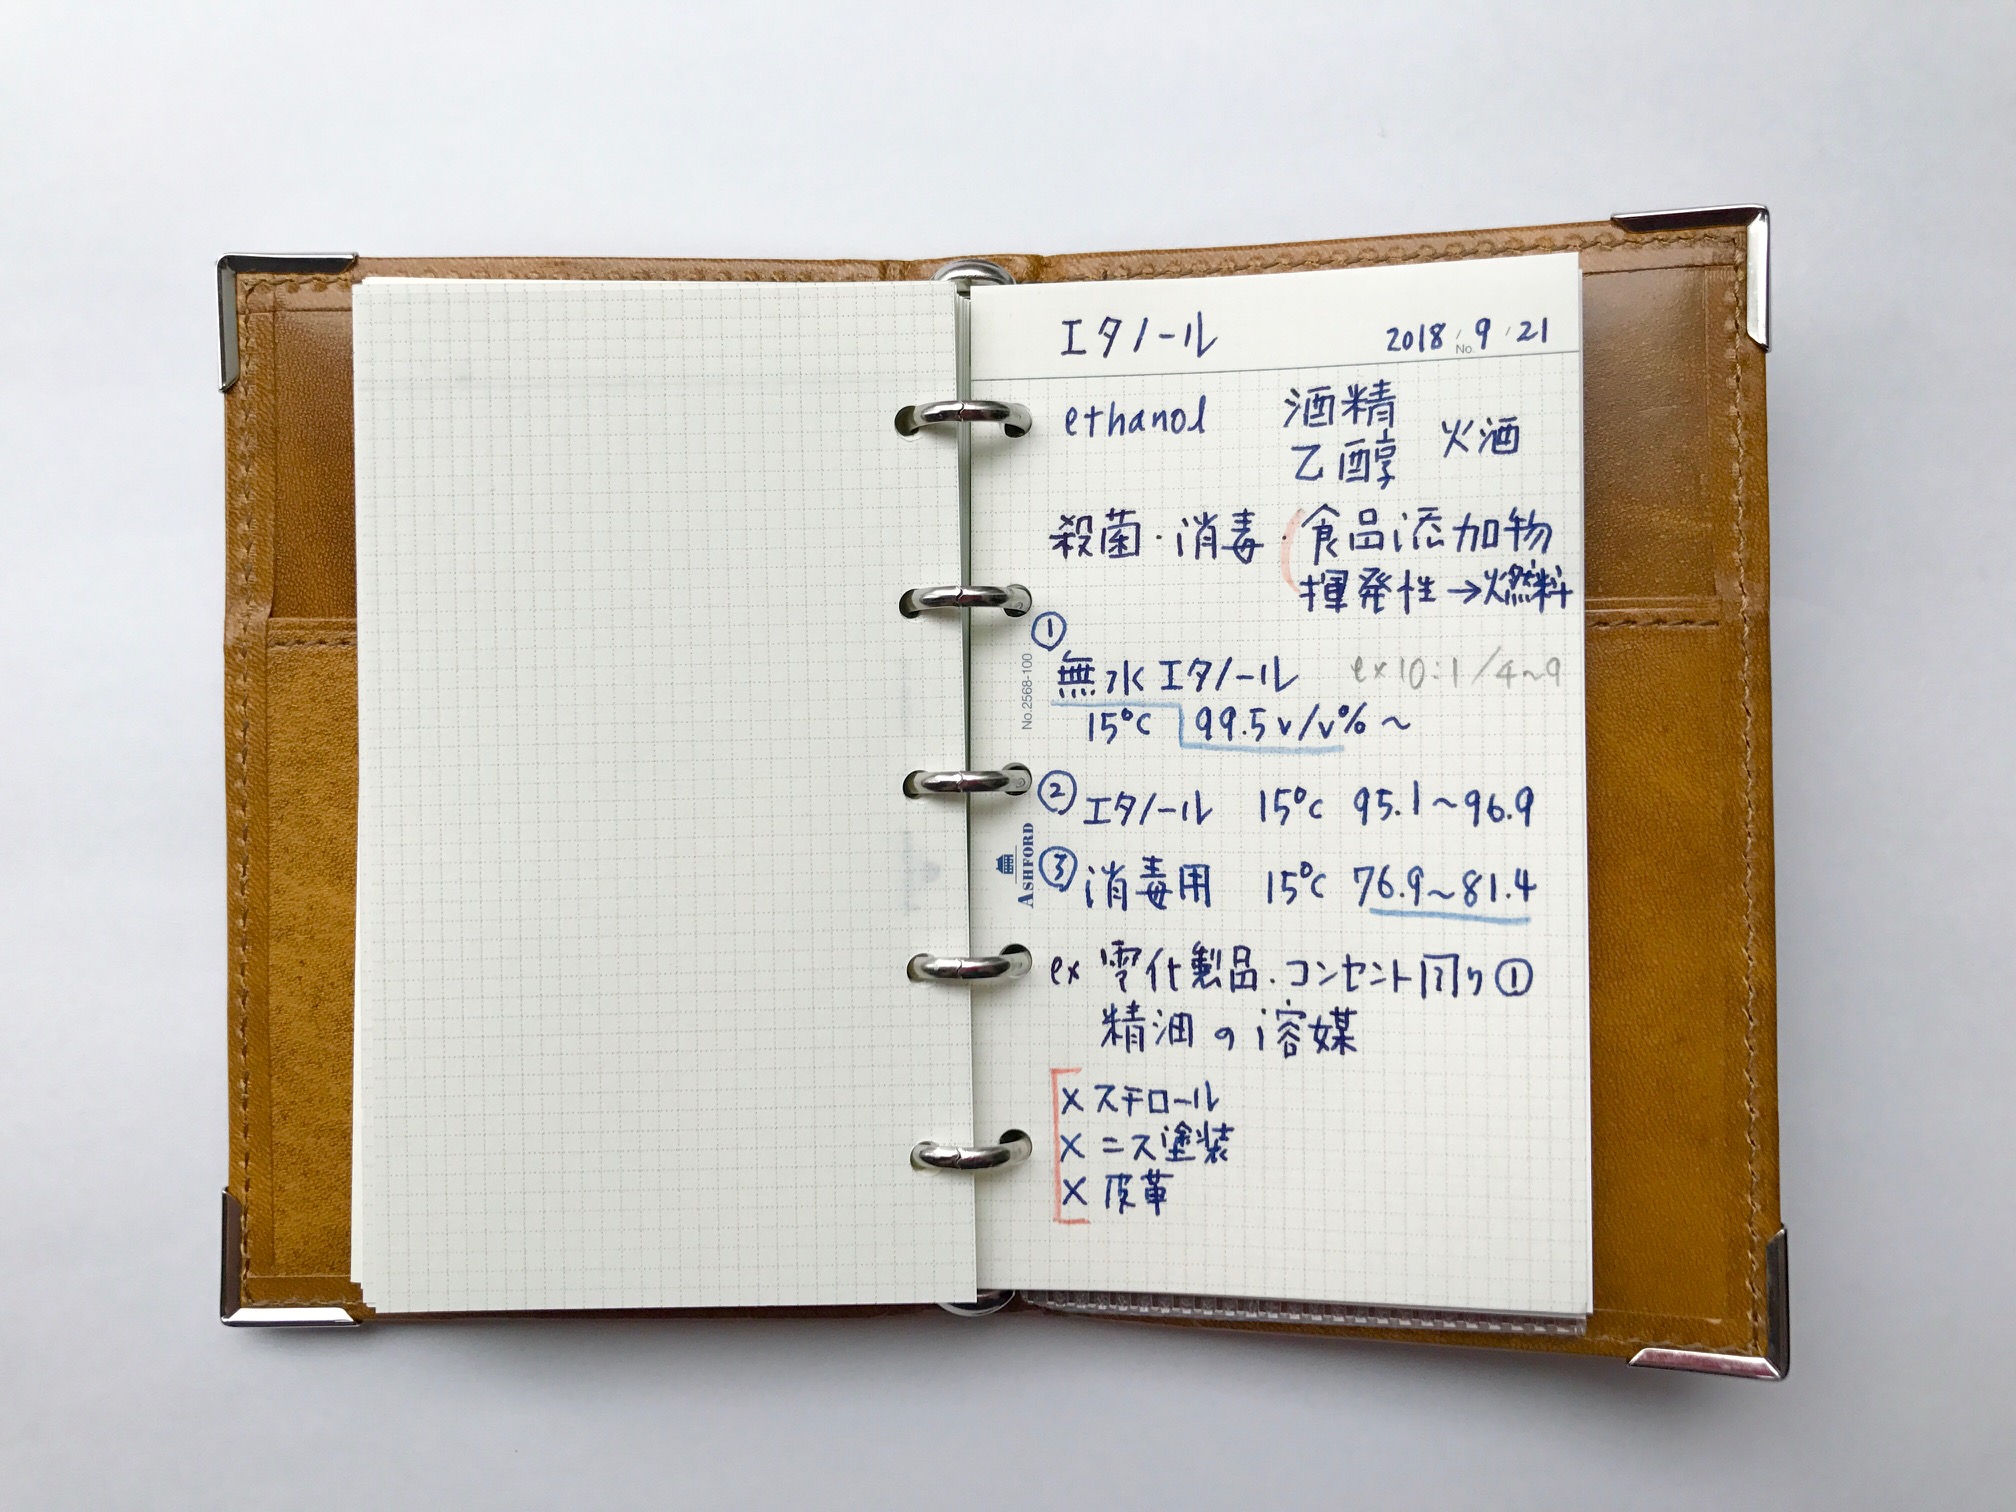 エタノール 2018 9 21
No.
ethanol 酒精 火酒
乙醇
殺菌・消毒・食品添加物
揮発性→燃料
①
無水エタノール ex 10:1/4~9
15℃ 99.5v/v%~
② エタノール 15℃ 95.1~96.9
③ 消毒用 15℃ 76.9~81.4
ex 電化製品・コンセント周り①
精油の溶媒
×スチロール
×ニス塗装
×皮革
No.2568-100
ASHFORD